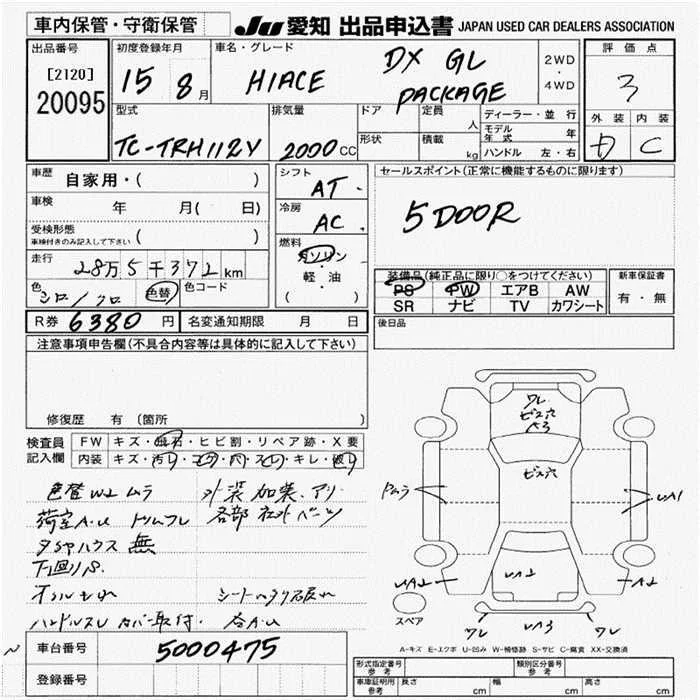 車内保管・守衛保管
JU 愛知 出品申込書 JAPAN USED CAR DEALERS ASSOCIATION
出品番号
[2120]
20095
初度登録年月
15 8月
車名・グレード
HIACE DX GL PACKAGE
2WD
・
4WD
評価点
3
外装 内装
C
型式
TC-TRH112V
排気量
2000CC
ドア
形状
定員
人
積載
kg
ディーラー・並行
モデル年式 年
ハンドル 左・右
車歴 自家用・( )
車検 年 月( 日)
受検形態
車検付きのみ記入して下さい ( )
走行 28万5千372km
色 シロ/クロ 色替 色コード
シフト AT
冷房 AC
燃料
ガソリン
・
軽・油
( )
セールスポイント(正常に機能するものに限ります)
5DOOR
装備品(純正品に限り○をつけてください)
PS PW エアB AW
SR ナビ TV カワシート
新車保証書
有・無
R券 6380円 名変通知期限 月 日
後日品
注意事項申告欄(不具合内容等は具体的に記入して下さい)
修復歴 有 (箇所 )
検査員記入欄
FW キズ・飛石・ヒビ割・リペア跡・X要
内装 キズ・汚レ・コゲ・穴・スレ・キレ・破レ
色替Wムラ 外装加装アリ
荷室A・U トリムフレ 各部社外パーツ
タイヤハウス無
下廻りS
ハンドルスレ カバー取付
ワレ
ビス穴
A3
ビス穴
ムラ
UA1
UA2
UA2
A2
スペア
ワレ UA3 ワレ
A-キズ E-エクボ U-凹み W-補修跡 S-サビ C-腐食 XX-交換済
車台番号 5000475
登録番号
形式指定番号 参考
類別区分番号 参考
車庫証明用 参考 長さ cm 幅 cm 高さ cm